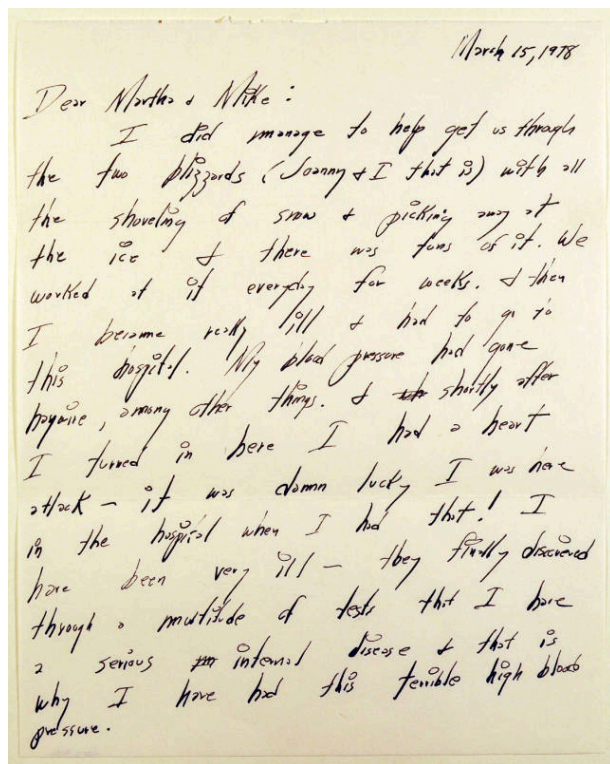 March 15, 1978
Dear Martha & Mike:
I did manage to help get us through
the two blizzards (Joanny & I that is) with all
the shoveling of snow & picking away at
the ice & there was tons of it. We
worked at it everyday for weeks. & then
I became really ill & had to go to
this hospital. My blood pressure had gone
haywire, among other things. & shortly after
I turned in here I had a heart
attack – it was damn lucky I was here
in the hospital when I had that! I
have been very ill – they finally discovered
through a multitude of tests that I have
a serious internal disease & that is
why I have had this terrible high blood
pressure.